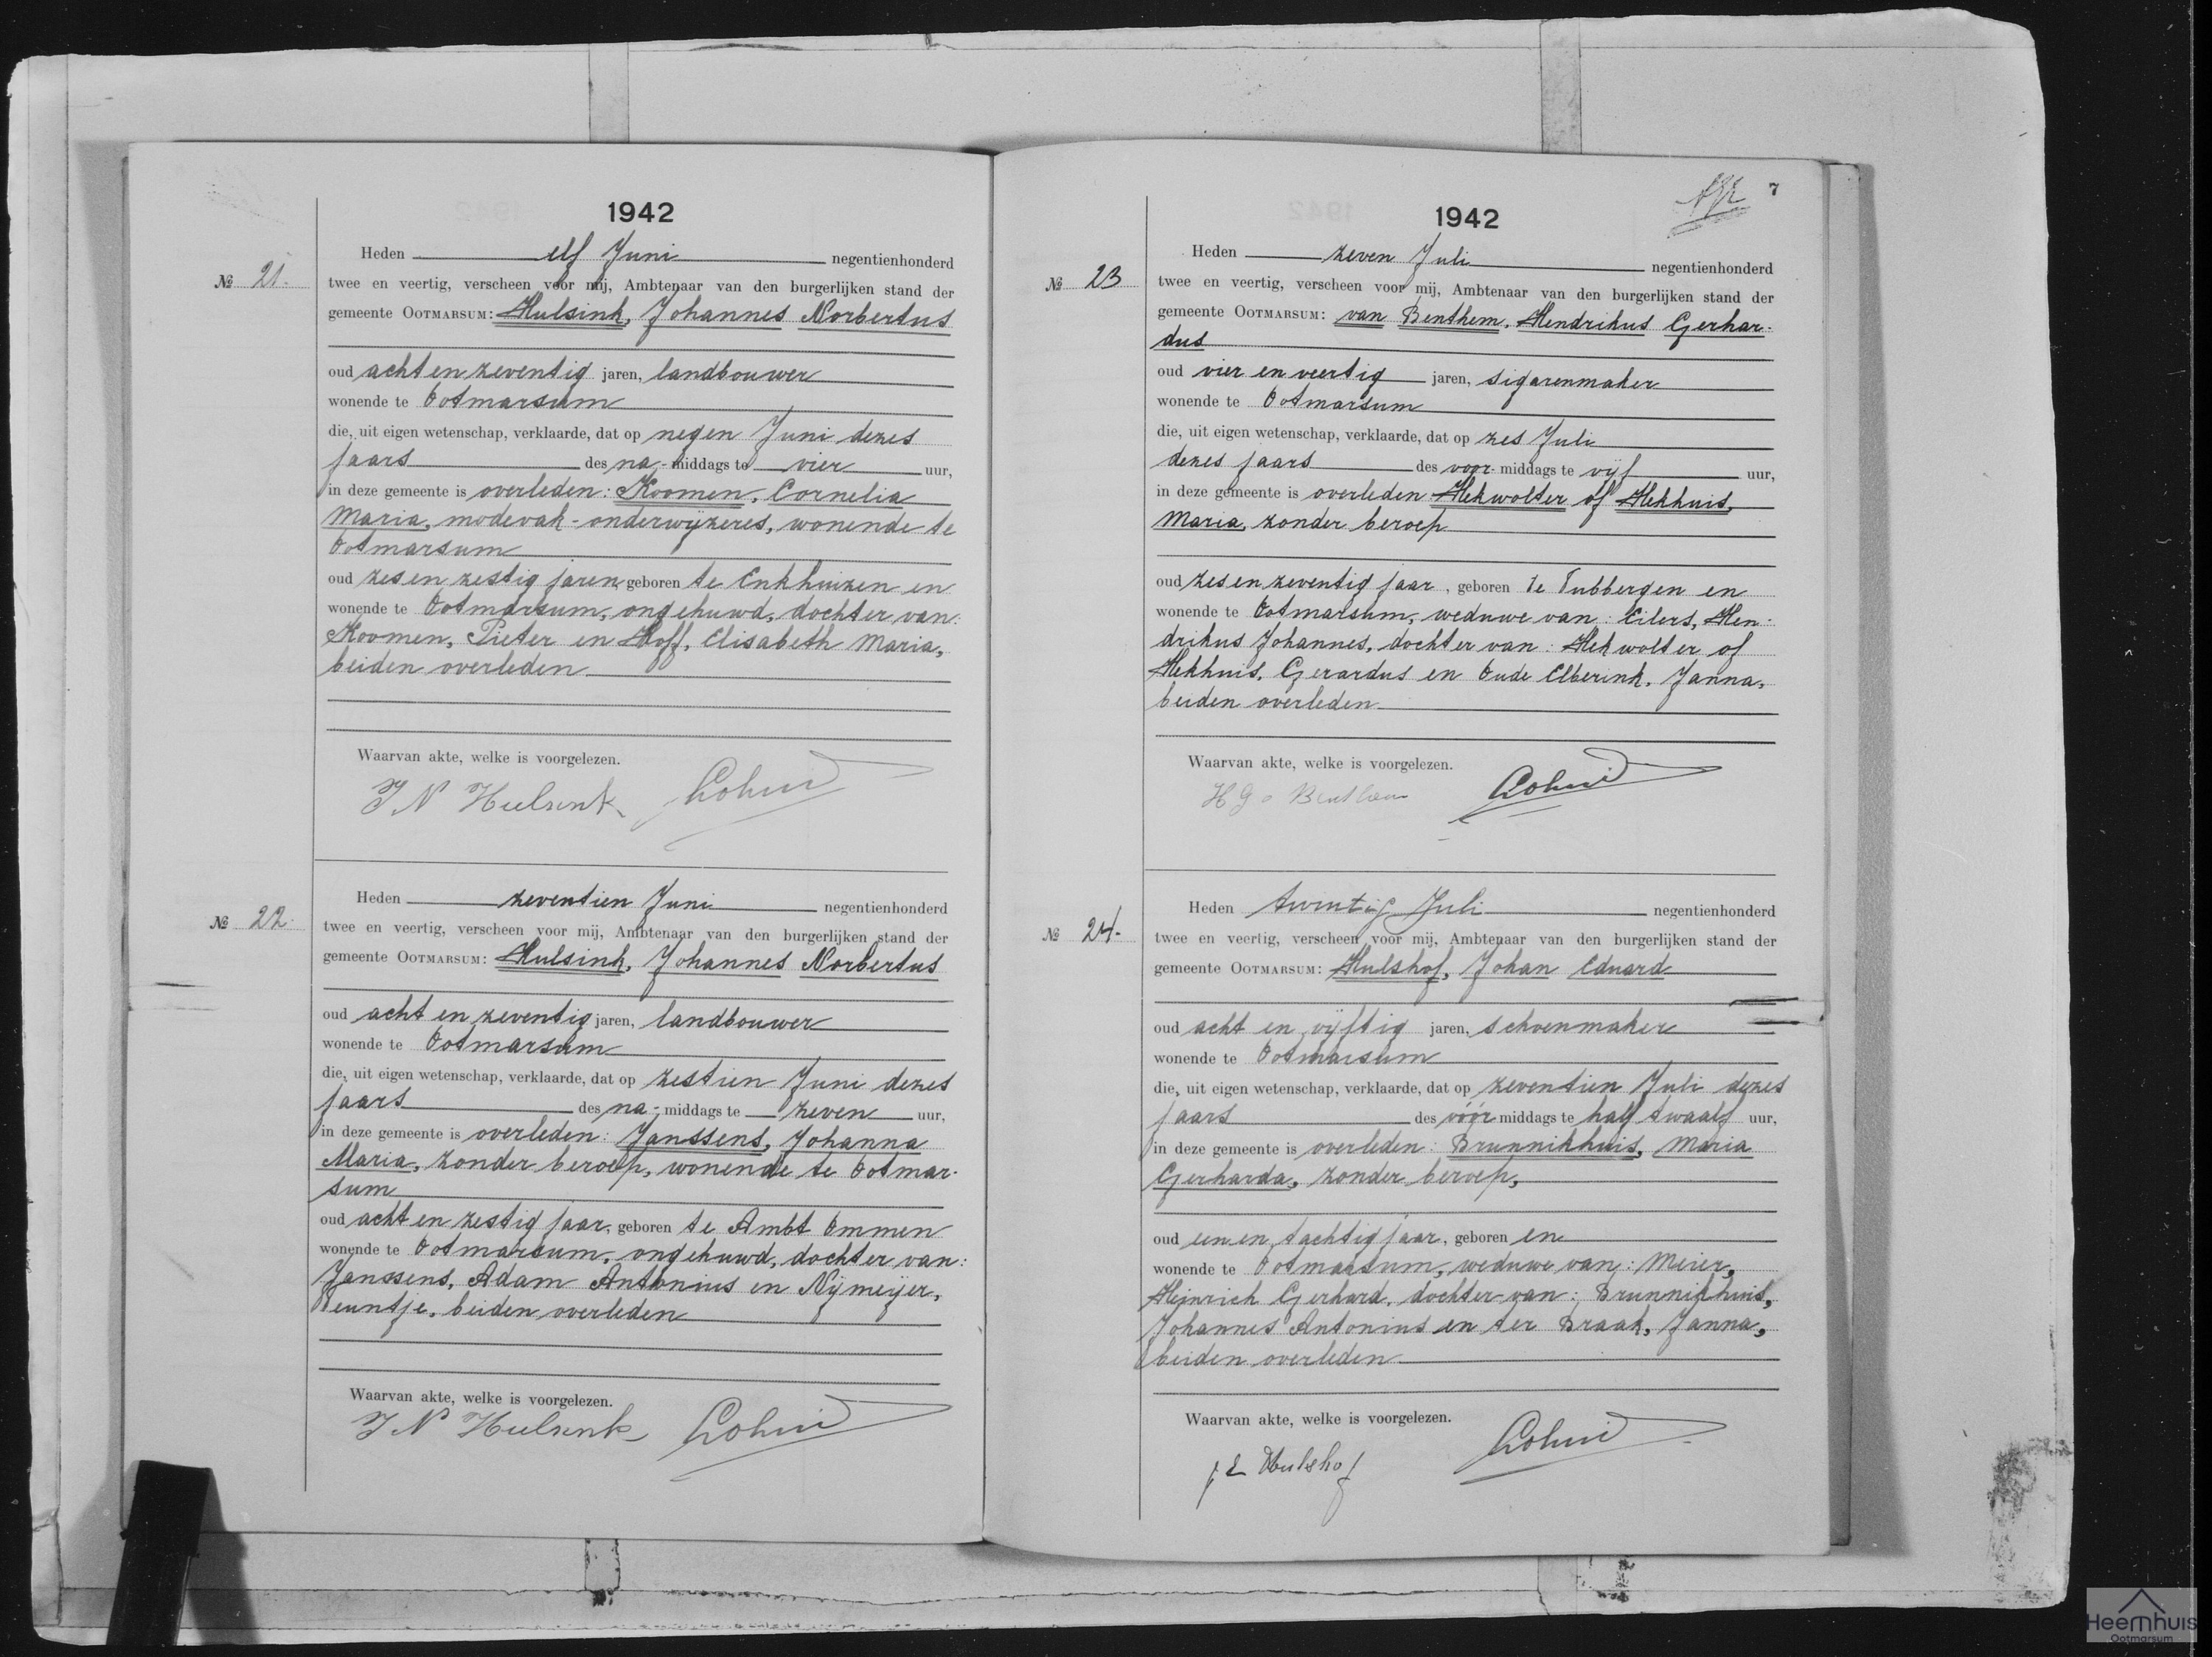 1942
Heden elf Juni negentienhonderd
№ 21.
twee en veertig, verscheen voor mij, Ambtenaar van den burgerlijken stand der
gemeente OOTMARSUM: Hulsink, Johannes Norbertus
oud acht en zeventig jaren, landbouwer
wonende te Ootmarsum
die, uit eigen wetenschap, verklaarde, dat op negen Juni dezes
jaars des na-middags te vier uur,
in deze gemeente is overleden: Koomen, Cornelia
Maria, modevak-onderwijzeres, wonende te
Ootmarsum
oud zes en zestig jaren geboren te Enkhuizen en
wonende te Ootmarsum, ongehuwd, dochter van:
Koomen, Pieter en Hoff, Elisabeth Maria,
beiden overleden
Waarvan akte, welke is voorgelezen.
J N Hulsink
Heden zeventien Juni negentienhonderd
№ 22.
twee en veertig, verscheen voor mij, Ambtenaar van den burgerlijken stand der
gemeente OOTMARSUM: Hulsink, Johannes Norbertus
oud acht en zeventig jaren, landbouwer
wonende te Ootmarsum
die, uit eigen wetenschap, verklaarde, dat op zestien Juni dezes
jaars des na-middags te zeven uur,
in deze gemeente is overleden: Janssens, Johanna
Maria, zonder beroep, wonende te Ootmar-
sum
oud acht en zestig jaar, geboren te Ambt Ommen
wonende te Ootmarsum, ongehuwd, dochter van:
Janssens, Adam Antonius en Nijmeijer,
Teuntje, beiden overleden
Waarvan akte, welke is voorgelezen.
J N Hulsink
7
1942
Heden zeven Juli negentienhonderd
№ 23
twee en veertig, verscheen voor mij, Ambtenaar van den burgerlijken stand der
gemeente OOTMARSUM: van Benthem, Hendrikus Gerhar-
dus
oud vier en veertig jaren, sigarenmaker
wonende te Ootmarsum
die, uit eigen wetenschap, verklaarde, dat op zes Juli
dezes jaars des voor-middags te vijf uur,
in deze gemeente is overleden: Hekwolter of Hekhuis,
Maria, zonder beroep
oud zes en zeventig jaar, geboren te Tubbergen en
wonende te Ootmarsum, weduwe van: Eilers, Hen-
drikus Johannes, dochter van: Hekwolter of
Hekhuis, Gerardus en Oude Elberink, Janna,
beiden overleden
Waarvan akte, welke is voorgelezen.
H G v Benthem
Heden twintig Juli negentienhonderd
№ 24.
twee en veertig, verscheen voor mij, Ambtenaar van den burgerlijken stand der
gemeente OOTMARSUM: Hulshof, Johan Eduard
oud acht en vijftig jaren, schoenmaker
wonende te Ootmarsum
die, uit eigen wetenschap, verklaarde, dat op zeventien Juli dezes
jaars des vóór-middags te half twaalf uur,
in deze gemeente is overleden: Brunnikhuis, Maria
Gerharda, zonder beroep,
oud een en tachtig jaar, geboren en
wonende te Ootmarsum, weduwe van: Meier,
Heinrich Gerhard, dochter van: Brunnikhuis,
Johannes Antonius en ter Braak, Janna,
beiden overleden
Waarvan akte, welke is voorgelezen.
J E Hulshof
Heemhuis
Ootmarsum